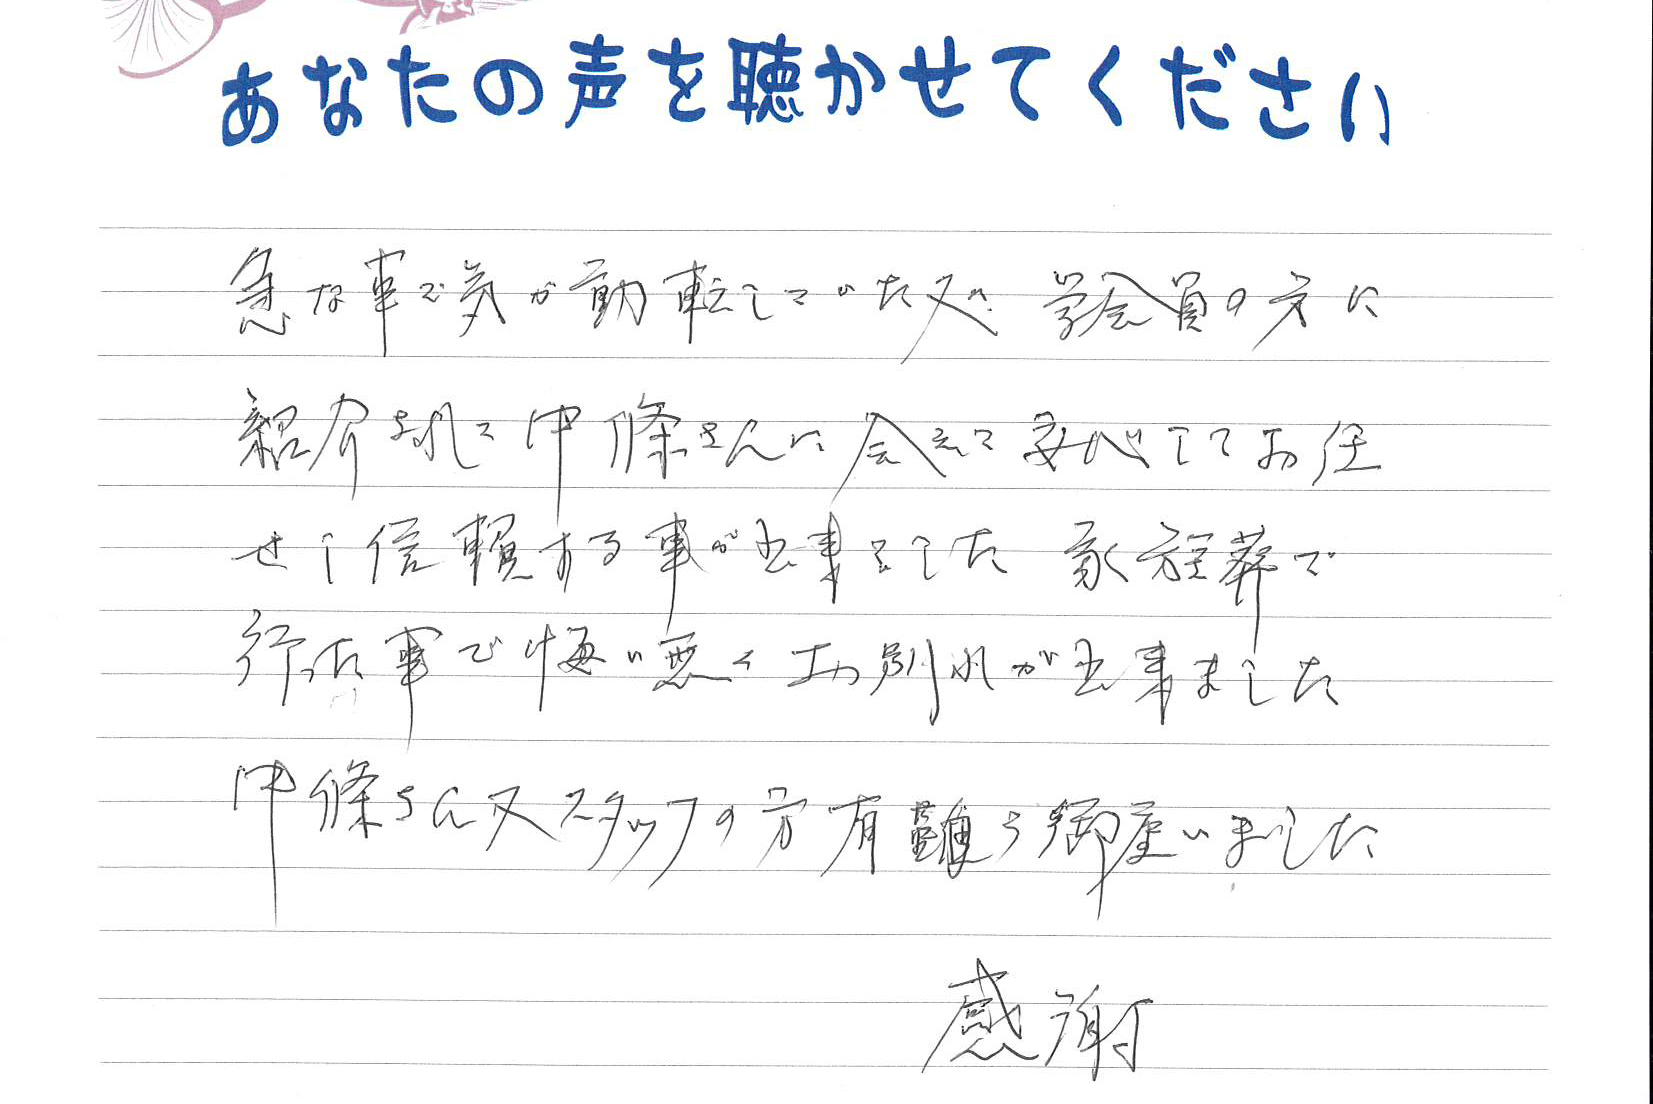 あなたの声を聴かせてください
急な事で気が動転していた処 学会員の方に
紹介されて中條さんに会えて安心してお任
せし信頼する事が出来ました 家族葬で
行った事で悔い悪くお別れが出来ました
中條さん又スタッフの方有難う御座いました
感謝